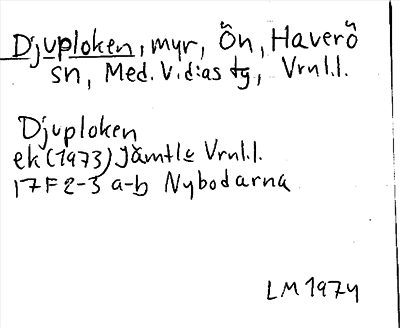 Djuploken, myr, Ön, Haverö
sn, Med. Vidias tg, Vrnl.l.
Djuploken
ek (1973) Jämtls Vrnl.l.
17F 2-3 a-b Nybodarna
LM 1974